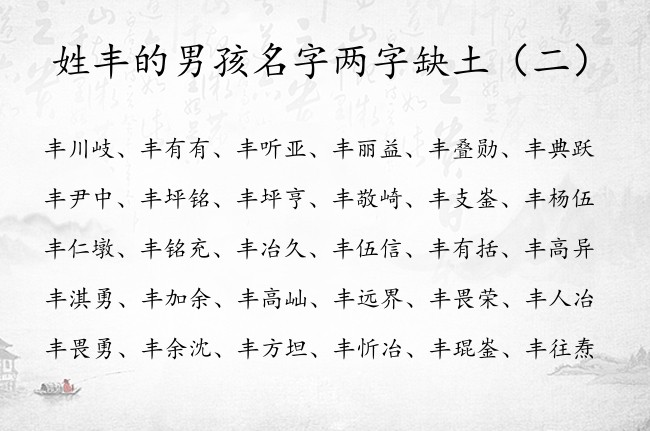 姓丰的男孩名字两字缺土（二）
丰川岐、丰有有、丰听亚、丰丽益、丰叠勋、丰典跃
丰尹中、丰坪铭、丰坪亨、丰敬崎、丰支崟、丰杨伍
丰仁墩、丰铭充、丰冶久、丰伍信、丰有括、丰高异
丰淇勇、丰加余、丰高屾、丰远界、丰畏荣、丰人冶
丰畏勇、丰余沈、丰方坦、丰忻冶、丰琨崟、丰往焘